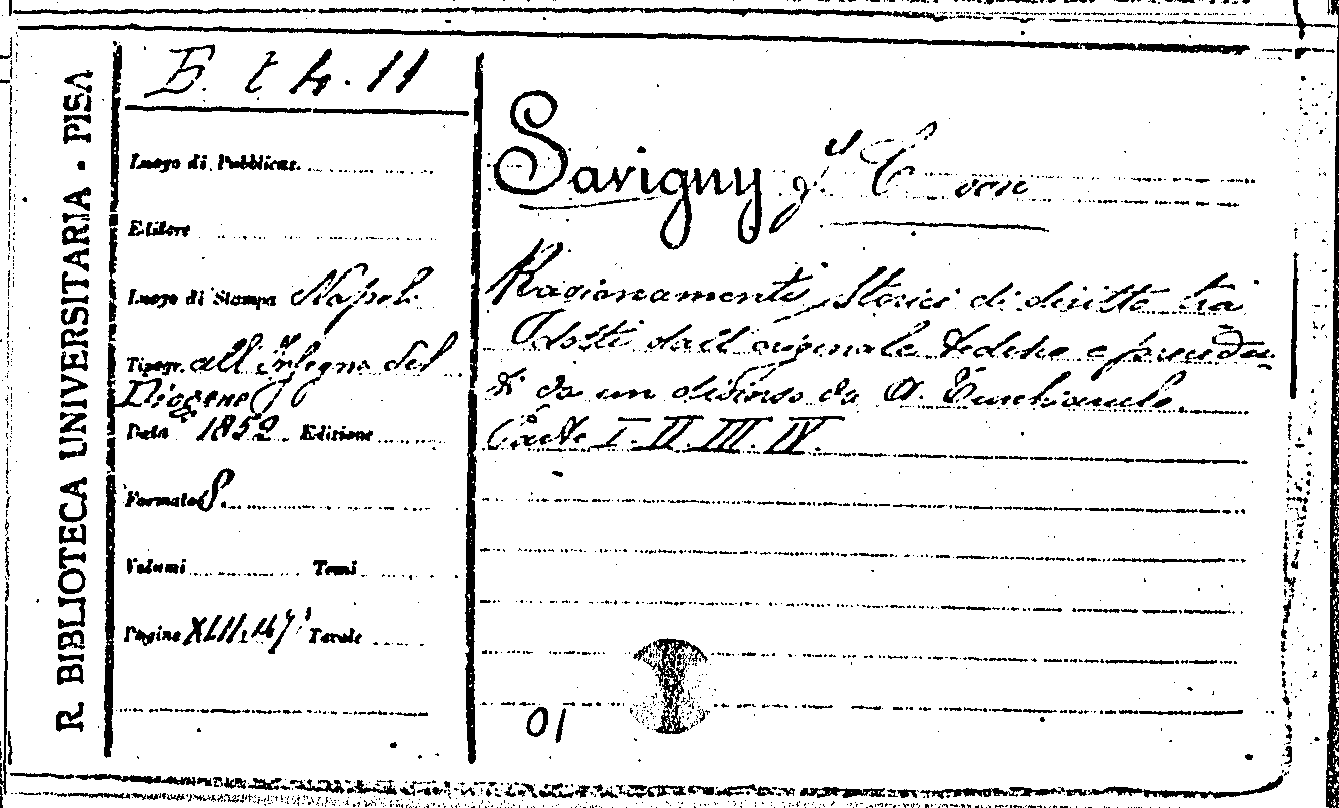 R. BIBLIOTECA UNIVERSITARIA - PISA
E. t 4. 11
Luogo di Pubblicaz.
Editore
Luogo di Stampa Napoli
Tipogr. all'Insegna del
Diogene
Data 1852. Edizione
Formato 8.
Volumi Tomi
Pagine XLII, Tavole
Savigny von
Ragionamenti storici di diritto tra
dotti dall originale tedesco e precedu
ti da un discorso da A. Turchiarulo.
Parte I. II. III. IV.
01